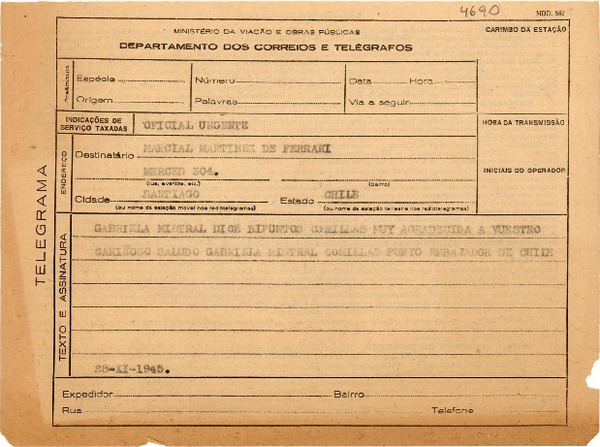 4690
MOD. 561
MINISTÉRIO DA VIAÇÃO E OBRAS PÚBLICAS
CARIMBO DA ESTAÇÃO
DEPARTAMENTO DOS CORREIOS E TELÉGRAFOS
Preâmbulo
Espécie Número Data Hora
Origem Palavras Via a seguir
INDICAÇÕES DE SERVIÇO TAXADAS
OFICIAL URGENTE
HORA DA TRANSMISSÃO
ENDEREÇO
Destinatário MARCIAL MARTINEZ DE FERRARI
MERCED 304.
INICIAIS DO OPERADOR
(rua, avenida, etc.) (bairro)
Cidade SANTIAGO Estado CHILE
(ou nome da estação móvel nos radiotelegramas) (ou nome da estação terrestre nos radiotelegramas)
TELEGRAMA
TEXTO E ASSINATURA
GABRIELA MISTRAL DICE BIPUNTOS COMILLAS MUY AGRADECIDA A VUESTRO
CARIÑOSO SALUDO GABRIELA MISTRAL COMILLAS PUNTO EMBAJADOR DE CHILE
28-XI-1945.
Expedidor Bairro
Rua Telefone